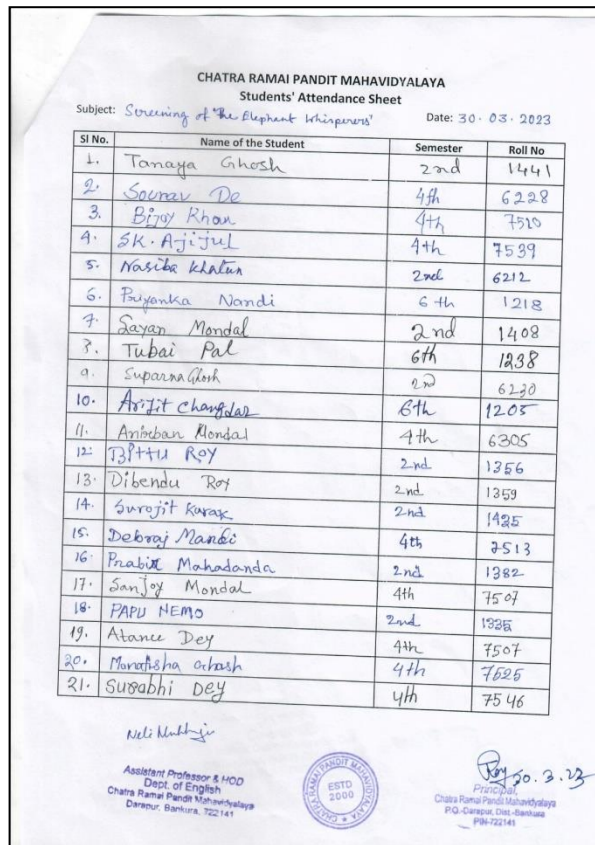 CHATRA RAMAI PANDIT MAHAVIDYALAYA
Students' Attendance Sheet
Subject: Screening of 'The Elephant Whisperers' Date: 30.03.2023
Sl No. Name of the Student Semester Roll No
1. Tanaya Ghosh 2nd 1441
2. Sourav De 4th 6228
3. Bijoy Khan 4th 7510
4. SK. Ajijul 4th 7539
5. Nasiba Khatun 2nd 6212
6. Priyanka Nandi 6th 1218
7. Sayan Mondal 2nd 1408
8. Tubai Pal 6th 1238
9. Suparna Ghosh 2nd 6230
10. Arijit Changdar 6th 1205
11. Anirban Mondal 4th 6305
12. Bittu Roy 2nd 1356
13. Dibendu Roy 2nd 1359
14. Surojit Karak 2nd 1425
15. Debraj Mandi 4th 7513
16. Prabir Mahadanda 2nd 1382
17. Sanjoy Mondal 4th 7507
18. PAPU NEMO 2nd 1335
19. Atanee Dey 4th 7507
20. Monalisha Ghosh 4th 7525
21. Surabhi Dey 4th 7546
Assistant Professor & HOD
Dept. of English
Chatra Ramai Pandit Mahavidyalaya
Darapur, Bankura, 722141
CHATRA RAMAI PANDIT MAHAVIDYALAYA
ESTD
2000
Roy 30.3.23
Principal,
Chatra Ramai Pandit Mahavidyalaya
P.O.-Darapur, Dist.-Bankura
PIN-722141